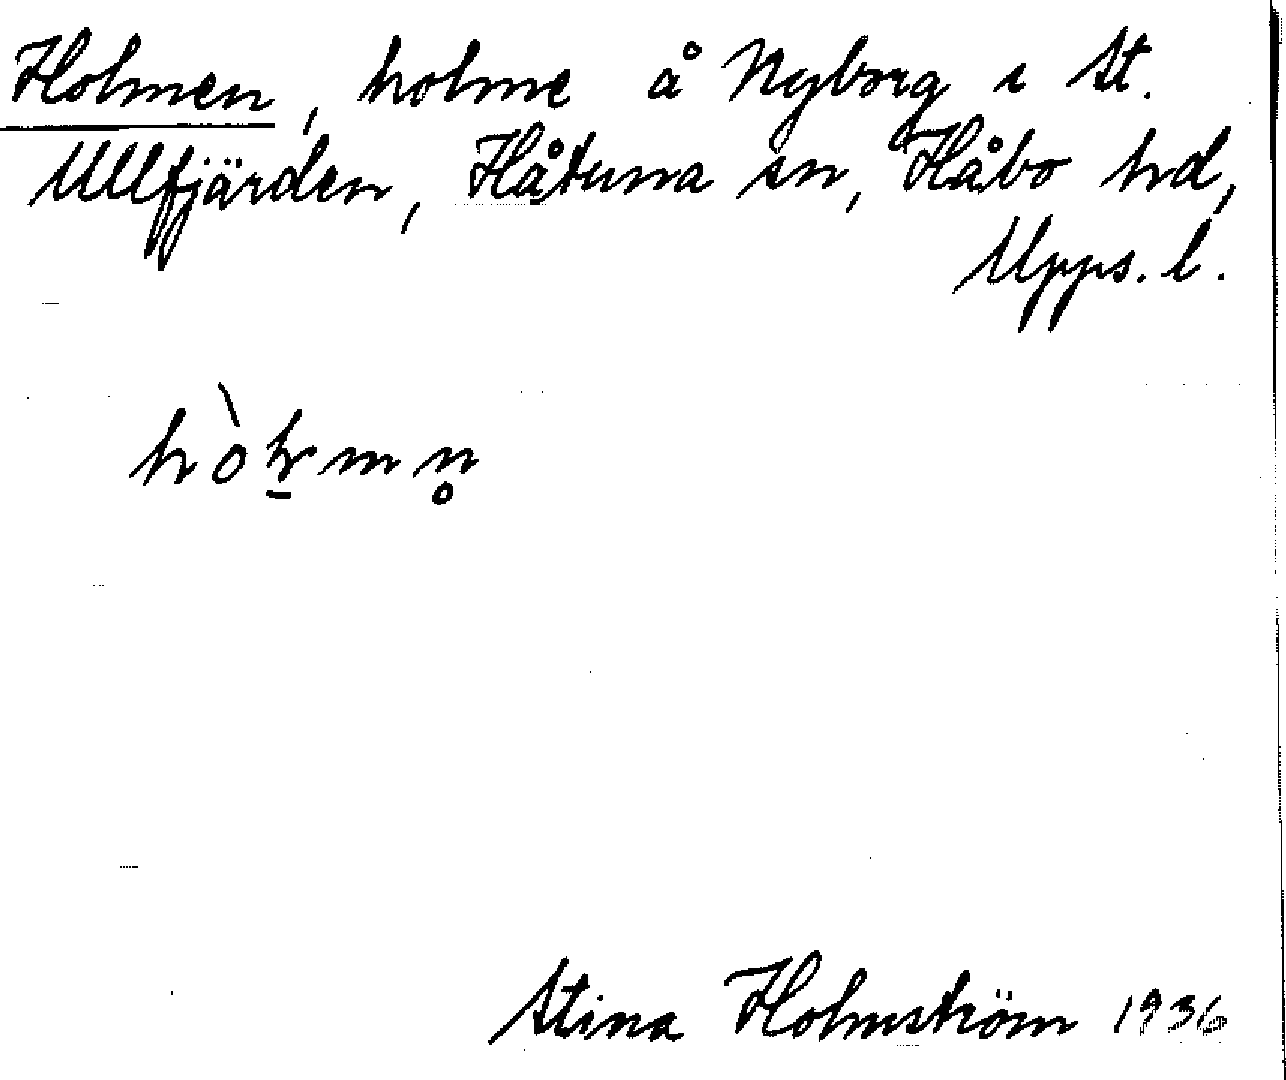 Holmen, holme å Nyborg i St.
Ullfjärden, Håtuna sn, Håbo hd,
Upps. l.
Stina Holmström 1936